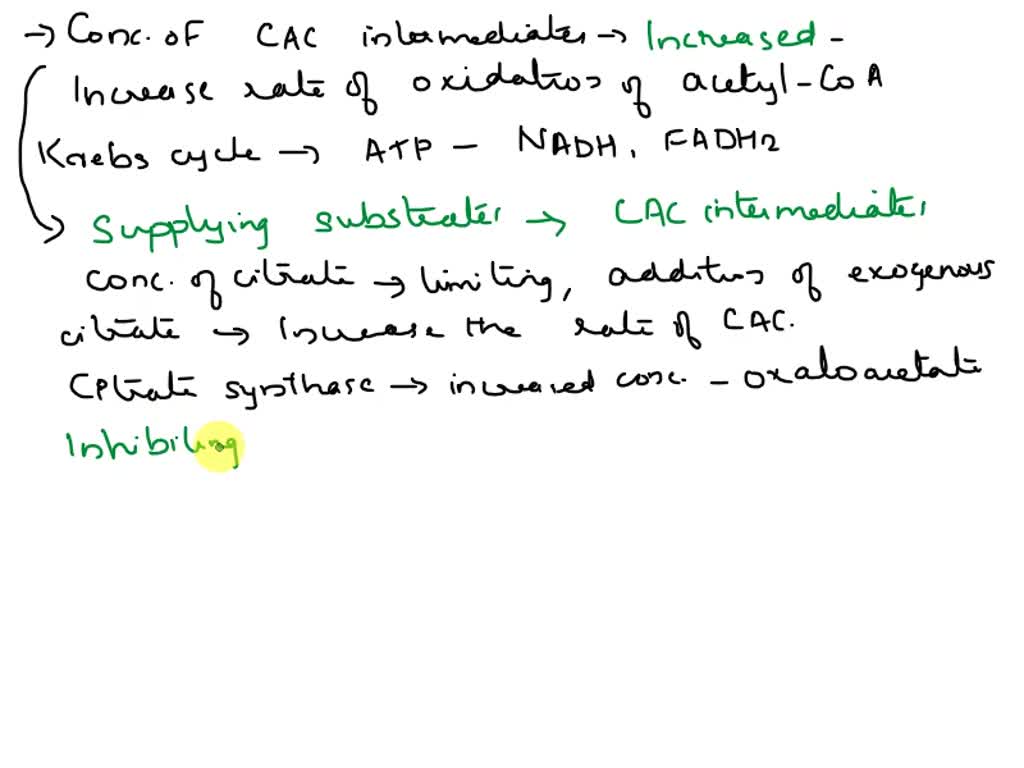 → Conc. of CAC intermediates → Increased -
Increase rate of oxidation of acetyl-CoA
Krebs cycle → ATP - NADH, FADH2
→ Supplying substrates → CAC intermediates
conc. of citrate → limiting, addition of exogenous
citrate → Increase the rate of CAC.
Citrate synthase → increased conc. - oxaloacetate
Inhibiting